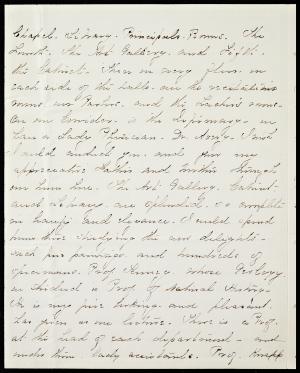 Chapel. Library. Principals Rooms. The
fourth. The Art Gallery. and fifth.
the Cabinet. Then on every floor. in
each side of the halls. are the recitation
rooms and the Teachers rooms.
On one Corridor. is the Dispensary.
have a Lady Physician. Dr.
I could and give my
appreciative Father and brother through
. The Art Gallery. Cabinet.
and Library. are splendid. so complete
in and . I could spend
hours there studying. the are delightful.
such fine paintings. and hundreds of
specimens. Prof Tenney. whose Geology
we studied is Prof. of Natural History.
He is very fine looking. and pleasant.
has given us one lecture. There is a Prof.
at the head of each department. and
under them. lady assistants. Prof. Knapp